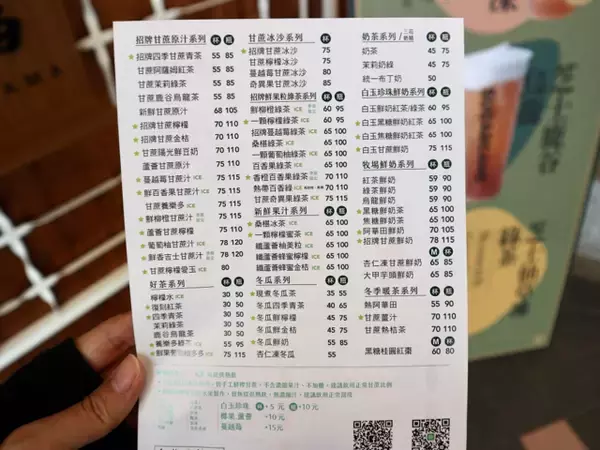 招牌甘蔗原汁系列 杯 瓶
★招牌四季甘蔗青茶 55 85
甘蔗阿薩姆紅茶 55 85
甘蔗茉莉綠茶 55 85
甘蔗鹿谷烏龍茶 55 85
新鮮甘蔗原汁 68 105
★招牌甘蔗檸檬 70 110
★招牌甘蔗金桔 70 110
★甘蔗陽光鮮豆奶 70 110
蘆薈甘蔗原汁 75 110
★蔓越莓甘蔗汁 ICE 75 110
★鮮百香果甘蔗汁 ICE 75 110
甘蔗養樂多 ICE 75 115
★鮮柳橙甘蔗汁 75 115
★蘆薈甘蔗檸檬 75 115
★葡萄柚甘蔗汁 ICE 78 120
★鮮香吉士甘蔗汁 78 120
★甘蔗檸檬愛玉 ICE 80
好茶系列 杯 瓶
檸檬水 ICE 30 50
★復刻紅茶 30 50
★四季青茶 30 50
茉莉綠茶 30 50
鹿谷烏龍茶 30 50
★養樂多綠 ICE 55 90
★鮮果 多多 ICE 75 115
甘蔗冰沙系列 杯
★招牌甘蔗冰沙 75
甘蔗檸檬冰沙 75
蔓越莓甘蔗冰沙 80
奇異果甘蔗冰沙 85
招牌鮮果粒綠茶系列 杯 瓶
鮮柳橙綠茶 60 95
★一顆檸檬綠茶 60 95
招牌蔓越莓綠茶 65 100
桑椹綠茶 65 100
一顆葡萄柚綠茶 65 100
百香果綠茶 65 100
★香橙百香果綠茶 65 100
★熱帶百香綠 70 110
甘蔗奇異果綠茶 ICE 65 100
新鮮果汁系列 杯 瓶
★桑椹冰茶 ICE 65 100
★一顆檸檬蜂蜜茶 65 100
纖蘆薈柚美粒 65 100
纖蘆薈蜂蜜檸檬 65 100
纖蘆薈蜂蜜金桔 65 100
冬瓜系列 杯 瓶
★現煮冬瓜茶 35 55
冬瓜四季青茶 40 65
★冬瓜鮮檸檬 45 75
冬瓜鮮金桔 45 75
冬瓜鮮奶 55 85
杏仁凍冬瓜 55
奶茶系列 杯 瓶
奶茶 45 75
茉莉奶綠 45 75
統一布丁奶 50
白玉珍珠鮮奶系列 杯 瓶
白玉鮮奶紅茶/綠茶 60 95
★白玉黑糖鮮奶紅茶 65 100
★白玉蔗糖鮮奶紅茶 65 100
★白玉蔗糖鮮奶 65 100
牧場鮮奶系列 杯 瓶
紅茶鮮奶 59 90
綠茶鮮奶 59 90
烏龍鮮奶 59 90
★黑糖鮮奶 65 100
★蔗糖鮮奶 65 100
★阿華田鮮奶 65 100
★招牌甘蔗鮮奶 78 115
M 杯
杏仁凍甘蔗鮮奶 65 85
大甲芋頭鮮奶 65 85
冬季暖茶系列 杯 瓶
熱阿華田 55 90
★甘蔗薑汁 70 110
甘蔗熱桔茶 70 110
M 杯
黑糖桂圓紅棗 60 80
白玉珍珠 杯+5元 瓶+10元
椰果.蘆薈 +10元
蔓越莓 +15元